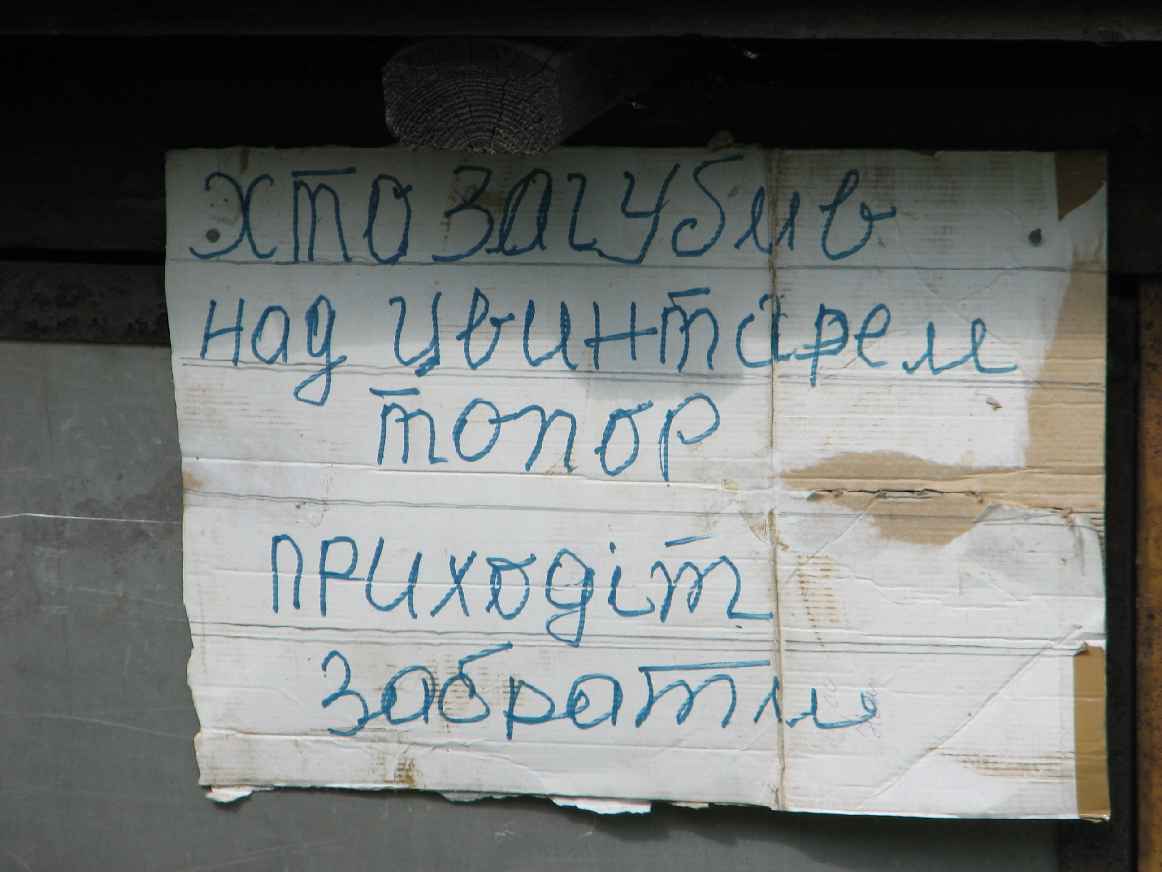 хто загубив
над цвинтарем
топор
приходіт
забрати